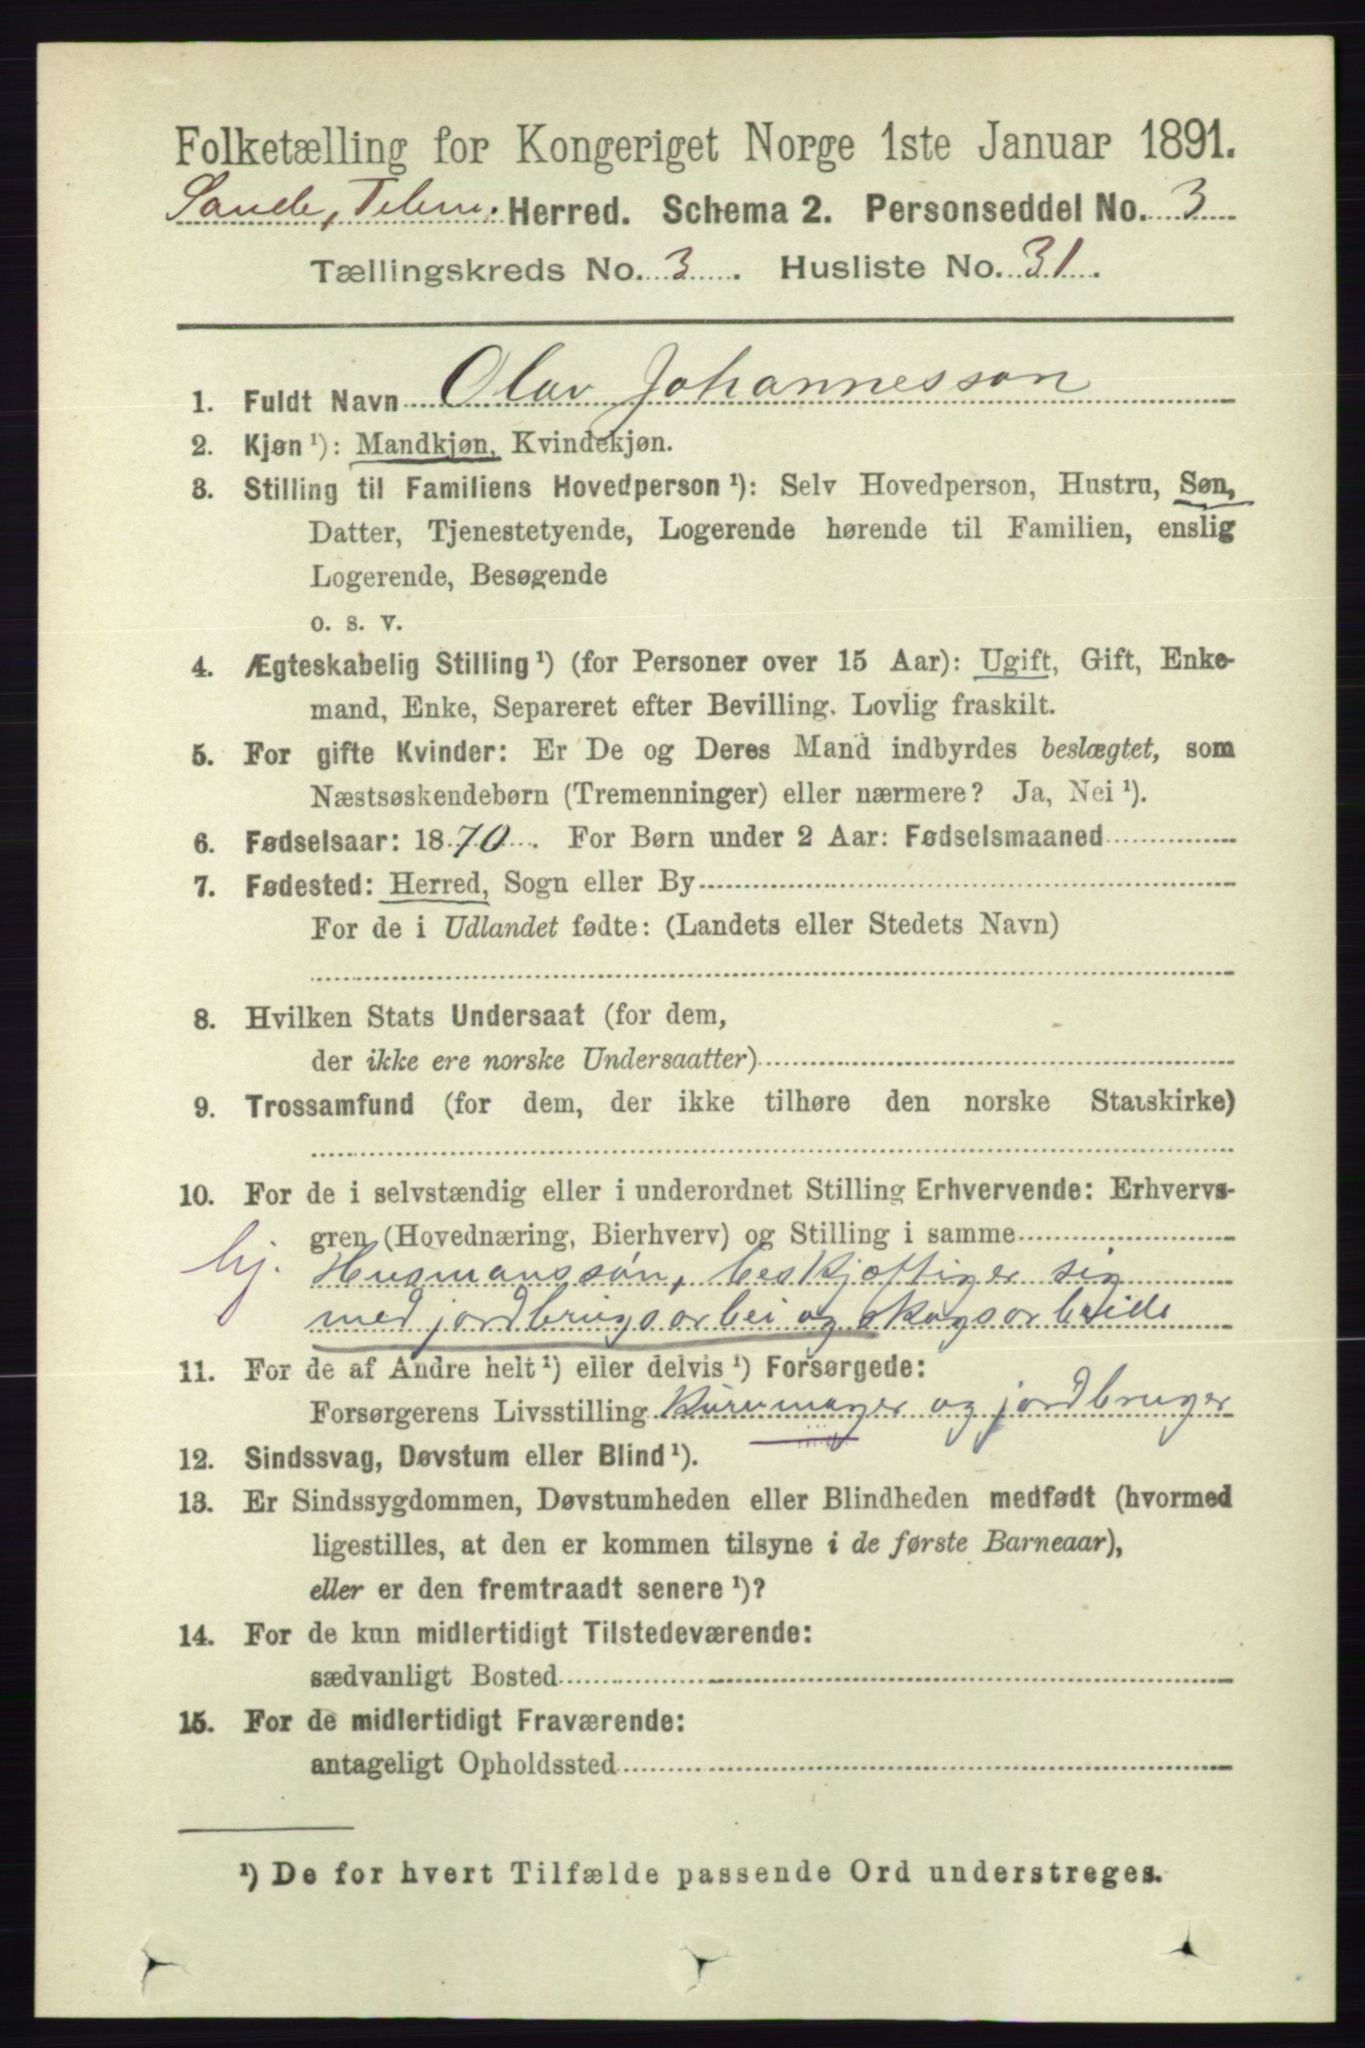 Folketælling for Kongeriget Norge 1ste Januar 1891.
Saude, Telem. Herred. Schema 2. Personseddel No. 3
Tællingskreds No. 3. Husliste No. 31.
1. Fuldt Navn Olav Johannesson
2. Kjøn ¹): Mandkjøn, Kvindekjøn.
3. Stilling til Familiens Hovedperson ¹): Selv Hovedperson, Hustru, Søn,
Datter, Tjenestetyende, Logerende hørende til Familien, enslig
Logerende, Besøgende
o. s. v.
4. Ægteskabelig Stilling ¹) (for Personer over 15 Aar): Ugift, Gift, Enke-
mand, Enke, Separeret efter Bevilling. Lovlig fraskilt.
5. For gifte Kvinder: Er De og Deres Mand indbyrdes beslægtet, som
Næstsøskendebørn (Tremenninger) eller nærmere? Ja, Nei ¹).
6. Fødselsaar: 1870. For Børn under 2 Aar: Fødselsmaaned
7. Fødested: Herred, Sogn eller By
For de i Udlandet fødte: (Landets eller Stedets Navn)
8. Hvilken Stats Undersaat (for dem,
der ikke ere norske Undersaatter)
9. Trossamfund (for dem, der ikke tilhøre den norske Statskirke)
10. For de i selvstændig eller i underordnet Stilling Erhvervende: Erhvervs-
gren (Hovednæring, Bierhverv) og Stilling i samme
hj. Husmanssøn, beskjæftiger sig
med jordbrugsarbei og skogsarbeide
11. For de af Andre helt ¹) eller delvis ¹) Forsørgede:
Forsørgerens Livsstilling Kurvmager og jordbruger
12. Sindssvag, Døvstum eller Blind ¹).
13. Er Sindssygdommen, Døvstumheden eller Blindheden medfødt (hvormed
ligestilles, at den er kommen tilsyne i de første Barneaar),
eller er den fremtraadt senere ¹)?
14. For de kun midlertidigt Tilstedeværende:
sædvanligt Bosted
15. For de midlertidigt Fraværende:
antageligt Opholdssted
¹) De for hvert Tilfælde passende Ord understreges.